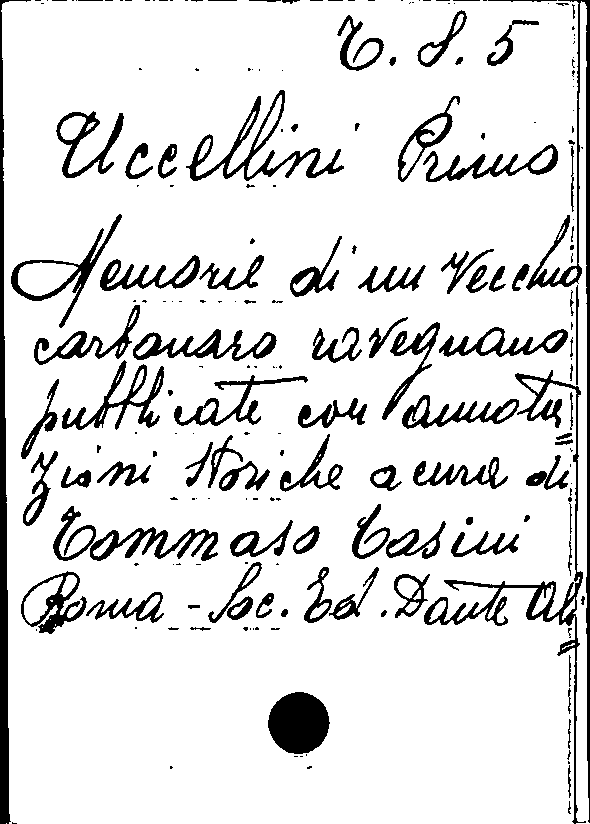 T. S. 5
Uccellini Primo
Memorie di un vecchio
carbonaro ravegnano
pubblicate con annota=
zioni storiche a cura di
Tommaso Casini
Roma - Soc. Ed. Dante Ali=